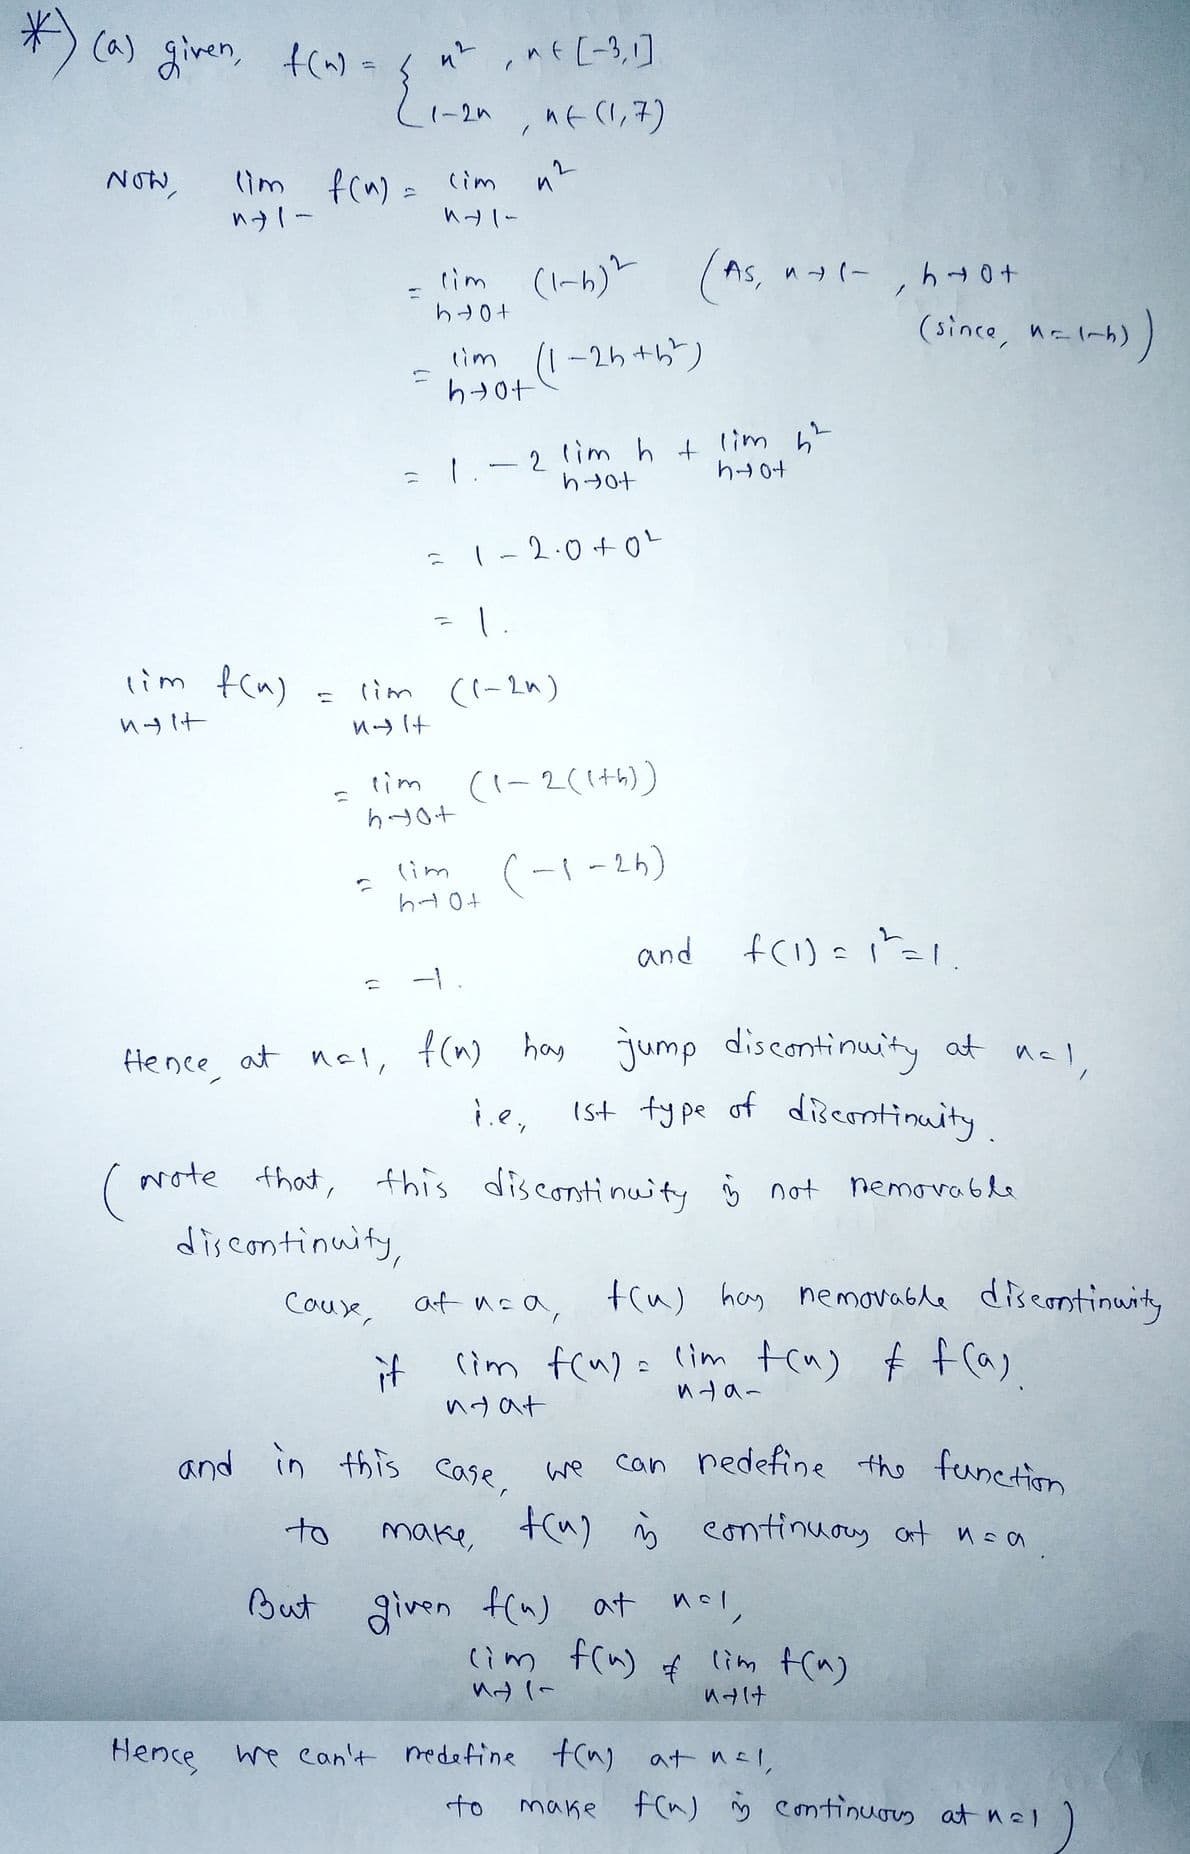 *) (a) given, f(x) = { x² , x ∈ [-3,1]
1-2x , x ∈ (1,7)
Now, lim x→1- f(x) = lim x→1- x²
= lim h→0+ (1-h)² (As, x→1- , h→0+
(since, x = 1-h))
= lim h→0+ (1-2h+h²)
= 1. - 2 lim h→0+ h + lim h→0+ h²
= 1 - 2.0 + 0²
= 1.
lim x→1+ f(x) = lim x→1+ (1-2x)
= lim h→0+ (1-2(1+h))
= lim h→0+ (-1-2h)
and f(1) = 1² = 1.
= -1.
Hence, at x=1, f(x) has jump discontinuity at x=1,
i.e., 1st type of discontinuity.
(Note that, this discontinuity is not removable
discontinuity,
Cause, at x=a, f(x) has removable discontinuity
if lim x→a+ f(x) = lim x→a- f(x) ≠ f(a).
and in this case, we can redefine the function
to make, f(x) is continuous at x=a.
But given f(x) at x=1,
lim x→1- f(x) ≠ lim x→1+ f(x)
Hence, we can't redefine f(x) at x=1,
to make f(x) is continuous at x=1)